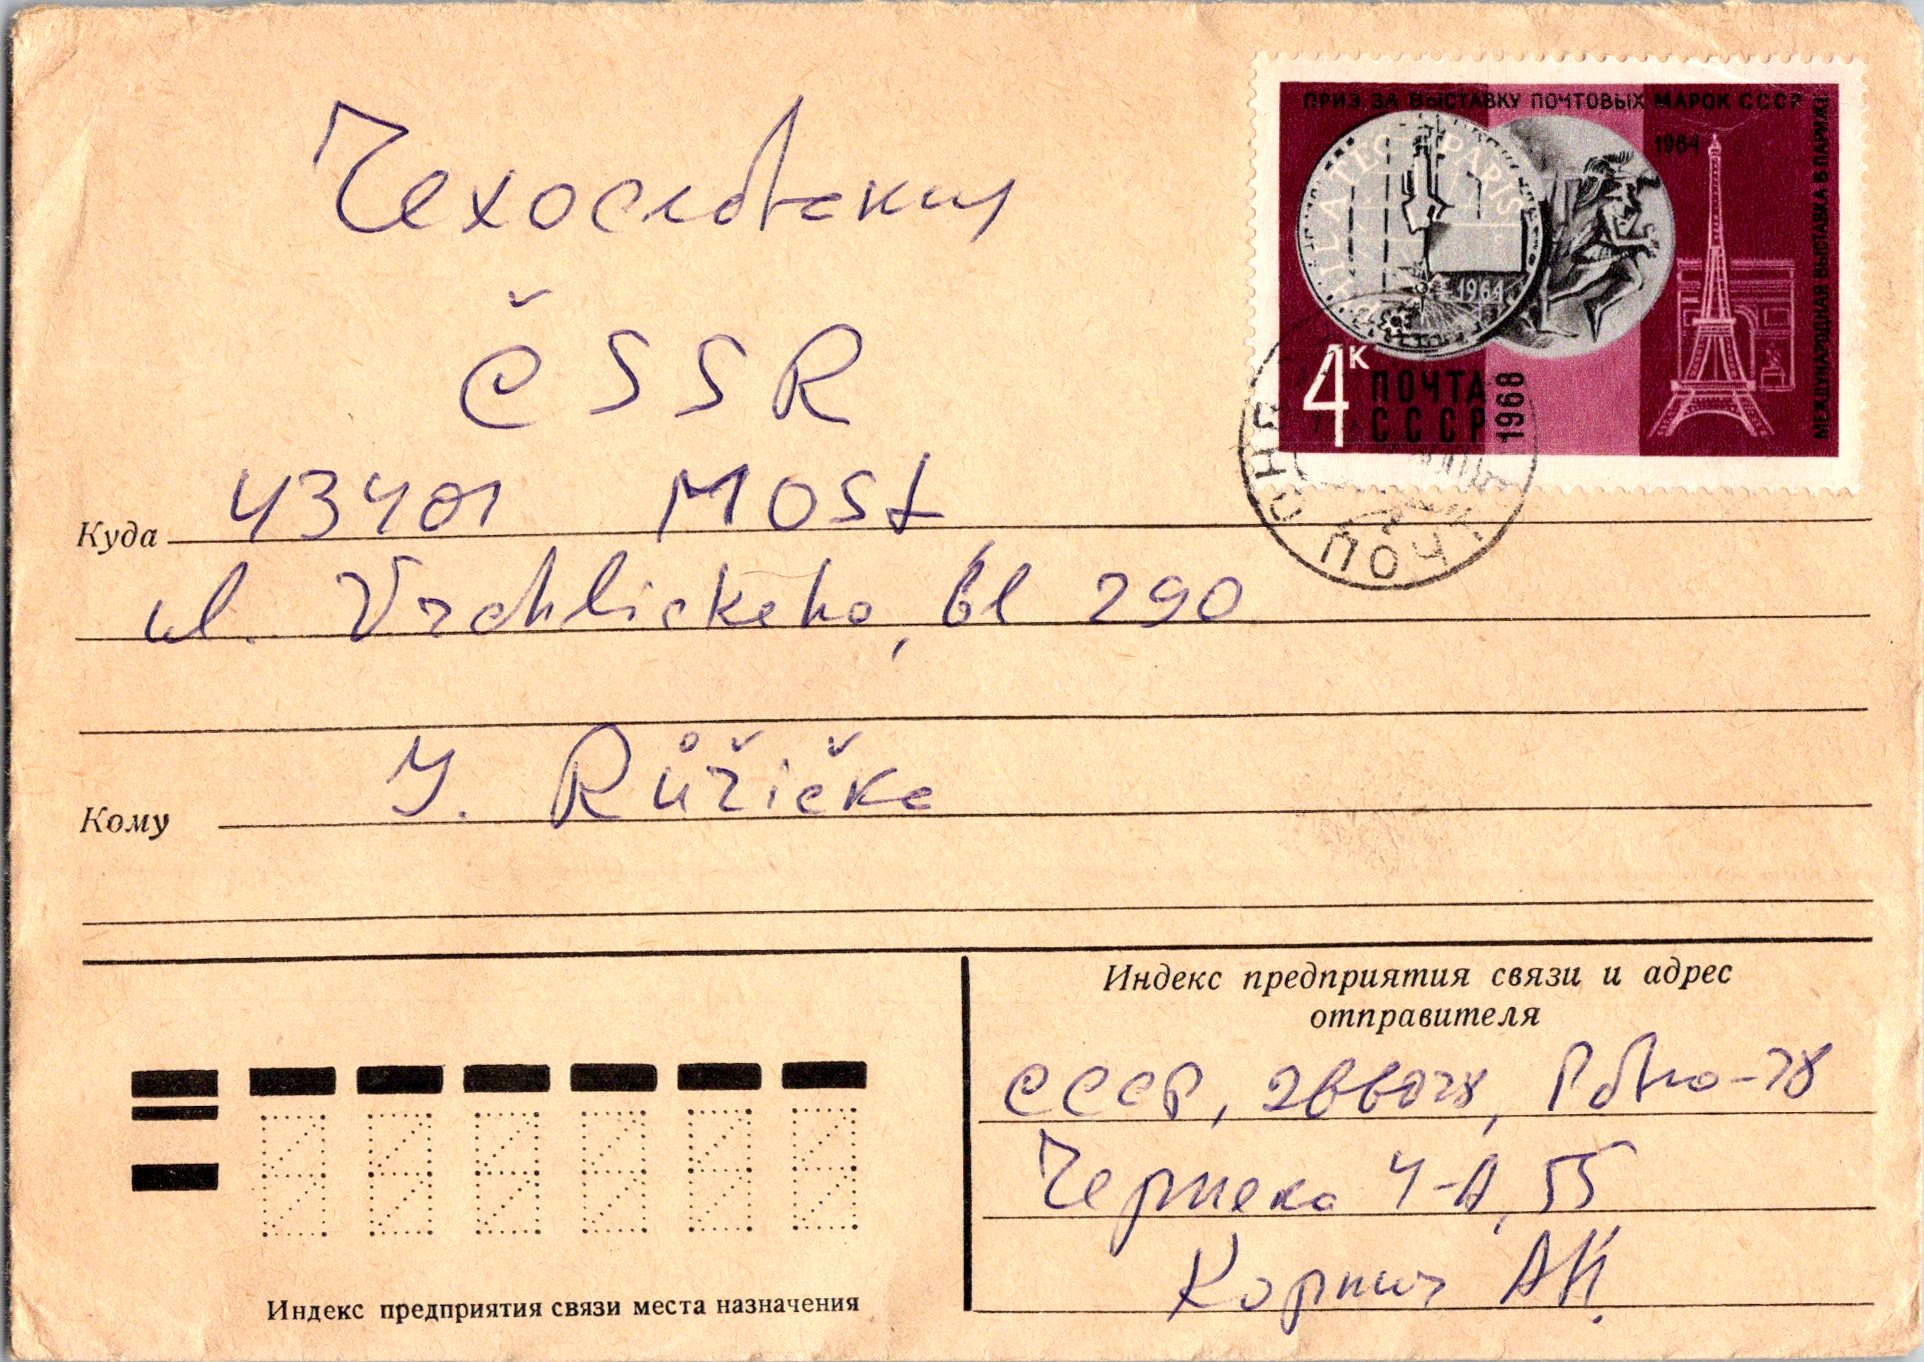 ПРИЗ ЗА ВЫСТАВКУ ПОЧТОВЫХ МАРОК СССР
1964
МЕЖДУНАРОДНАЯ ВЫСТАВКА В ПАРИЖЕ
PHILATEC PARIS
1964
4к ПОЧТА
СССР 1968
ПОЧТ
Чехословакия
ČSSR
Куда 43401 MOSt
ul. Vrchlickeho, bl 290
Кому Y. Růžička
Индекс предприятия связи и адрес
отправителя
СССР, Ровно-28
4-А, 55
Корнич
Индекс предприятия связи места назначения